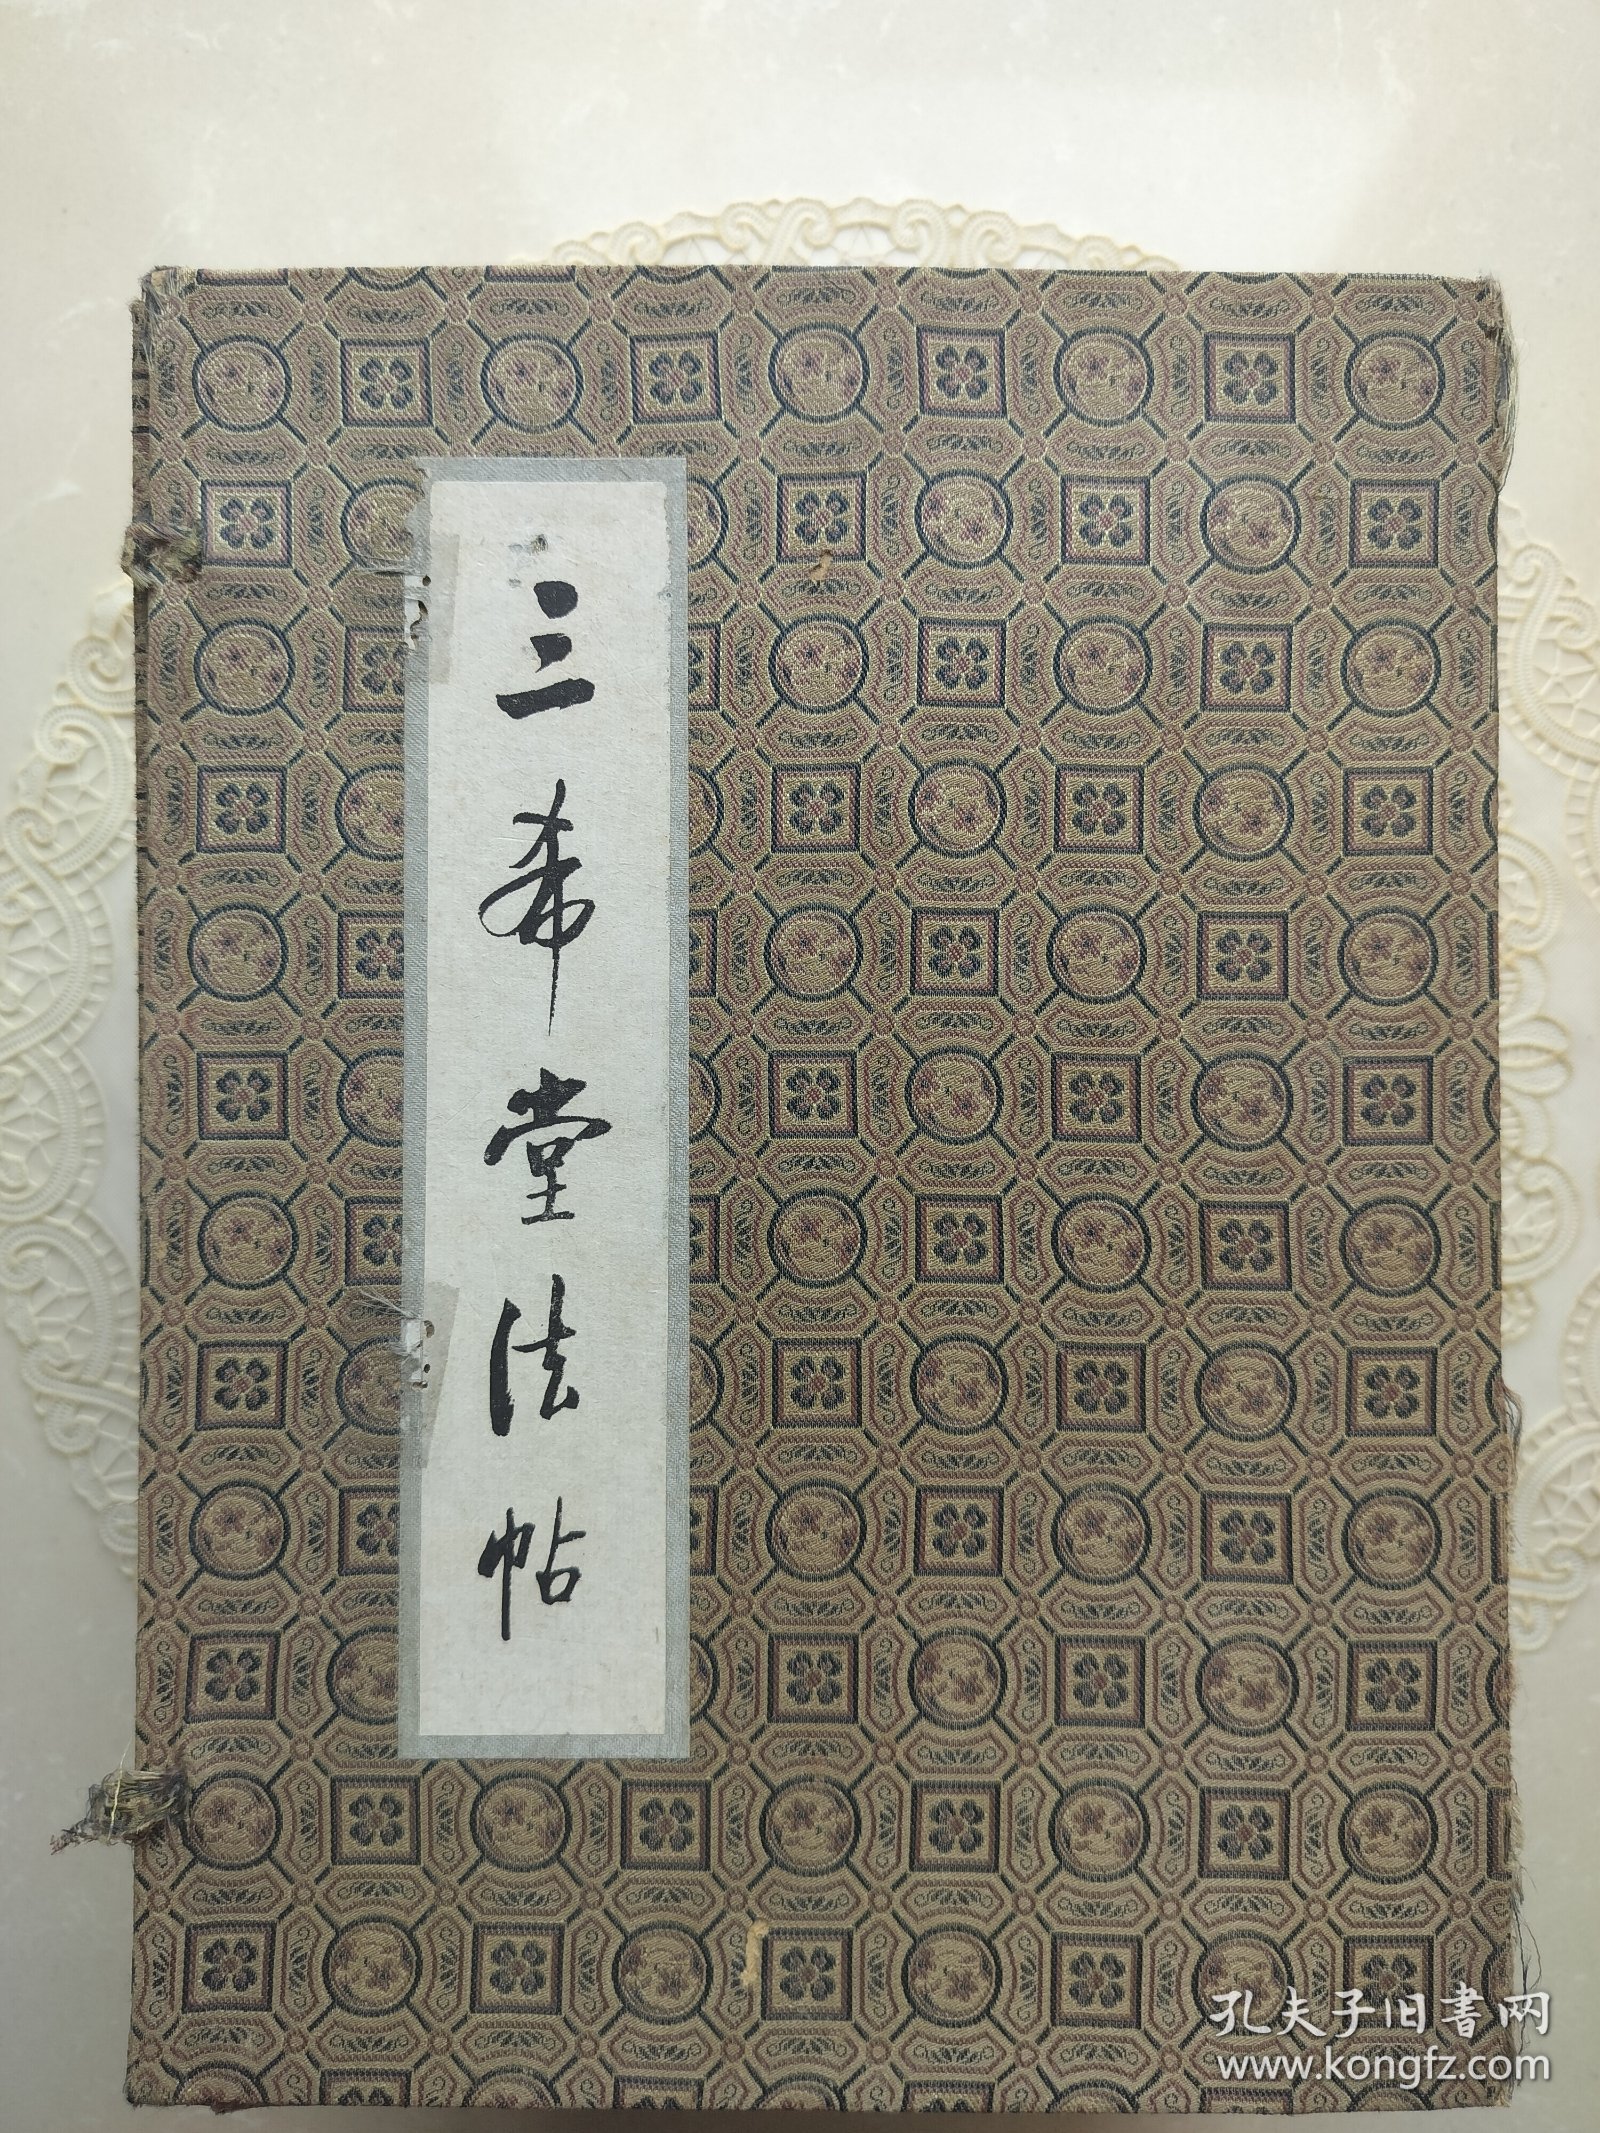 三希堂法帖
孔夫子旧書网
www.kongfz.com